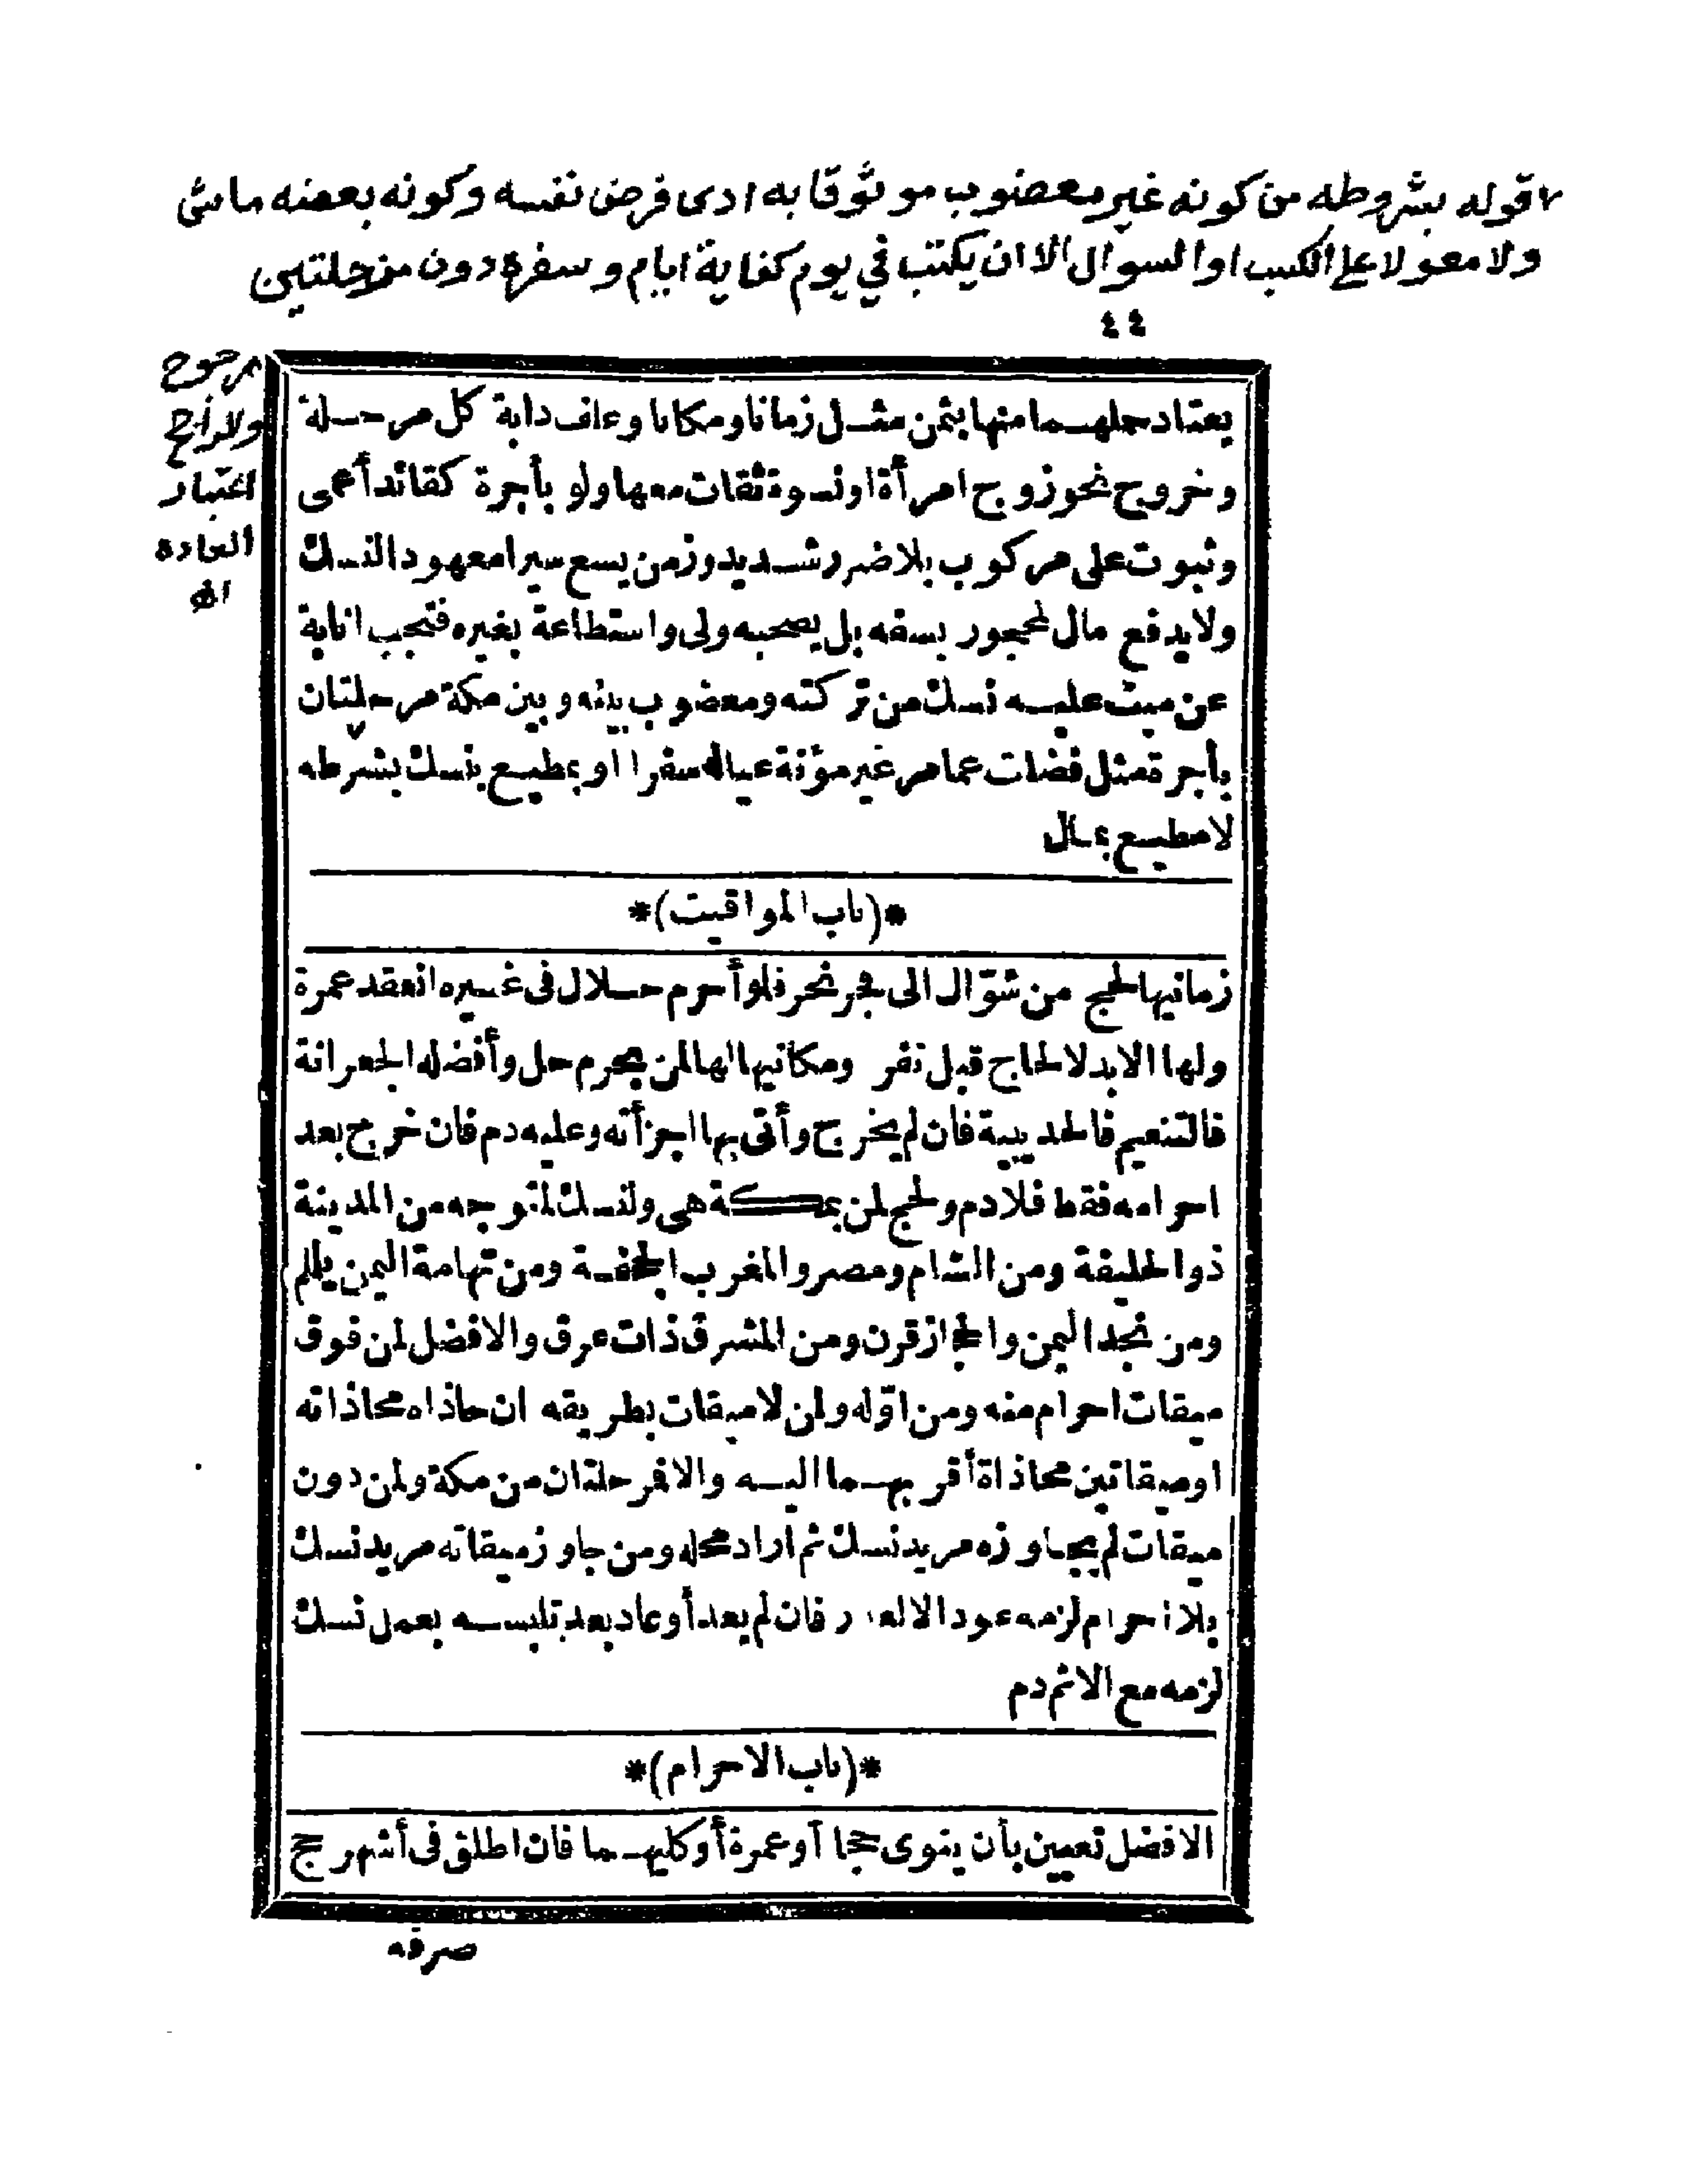 قوله بشروطه من كونه غير معضوب موثوقا به ادى فرض نفسه وكونه بعضه ماشى
ولا معولا على الكسب او السوال الا ان يكتب في يوم كفاية ايام وسفره دون مرحلتين
٤٤
مرجوح
والراجح
اعتبار
العادة
اه
يعتاد حملهما منها بثمن مثل زمانا ومكانا وعلف دابة كل مرحلة
وخروج نحو زوج امرأة او نسوة ثقات معها ولو بأجرة كقائد أعمى
وثبوت على مركوب بلا ضرر شديد وزمن يسع سيرا معهود النسك
ولا يدفع مال لمحجور بسفه بل يصحبه ولى واستطاعة بغيره فتجب انابة
عن ميت عليه نسك من تركته ومعضوب بينه وبين مكة مرحلتان
بأجرة مثل فضلت عما مر غير مؤنة عياله سفرا او بمطيع بنسك بشرطه
لا مطيع بمال
*(باب المواقيت)*
زمانيها لحج من شوّال الى فجر نحر فلو أحرم حلال فى غيره انعقد عمرة
ولها الابد لا لحاج قبل نفر ومكانيها لها لمن بحرم حل وأفضله الجعرانة
فالتنعيم فالحديبية فان لم يخرج وأتى بها اجزأته وعليه دم فان خرج بعد
احرامه فقط فلا دم ولحج لمن بمكة هى ولنسك لمتوجه من المدينة
ذو الحليفة ومن الشام ومصر والمغرب الجحفة ومن تهامة اليمن يلملم
ومن نجد اليمن والحجاز قرن ومن المشرق ذات عرق والافضل لمن فوق
ميقات احرام منه ومن اوّله ولمن لا ميقات بطريقه ان حاذاه محاذاته
او ميقاتين محاذاة أقربهما اليه والا فمرحلتان من مكة ولمن دون
ميقات لم يجاوزه مريد نسك ثم اراد محله ومن جاوز ميقاته مريد نسك
بلا احرام لزمه عود الا لعذر فان لم يعد أو عاد بعد تلبسه بعمل نسك
لزمه مع الاثم دم
*(باب الاحرام)*
الافضل تعيين بأن ينوى حجا أو عمرة أو كليهما فان اطلق فى أشهر حج
صرفه